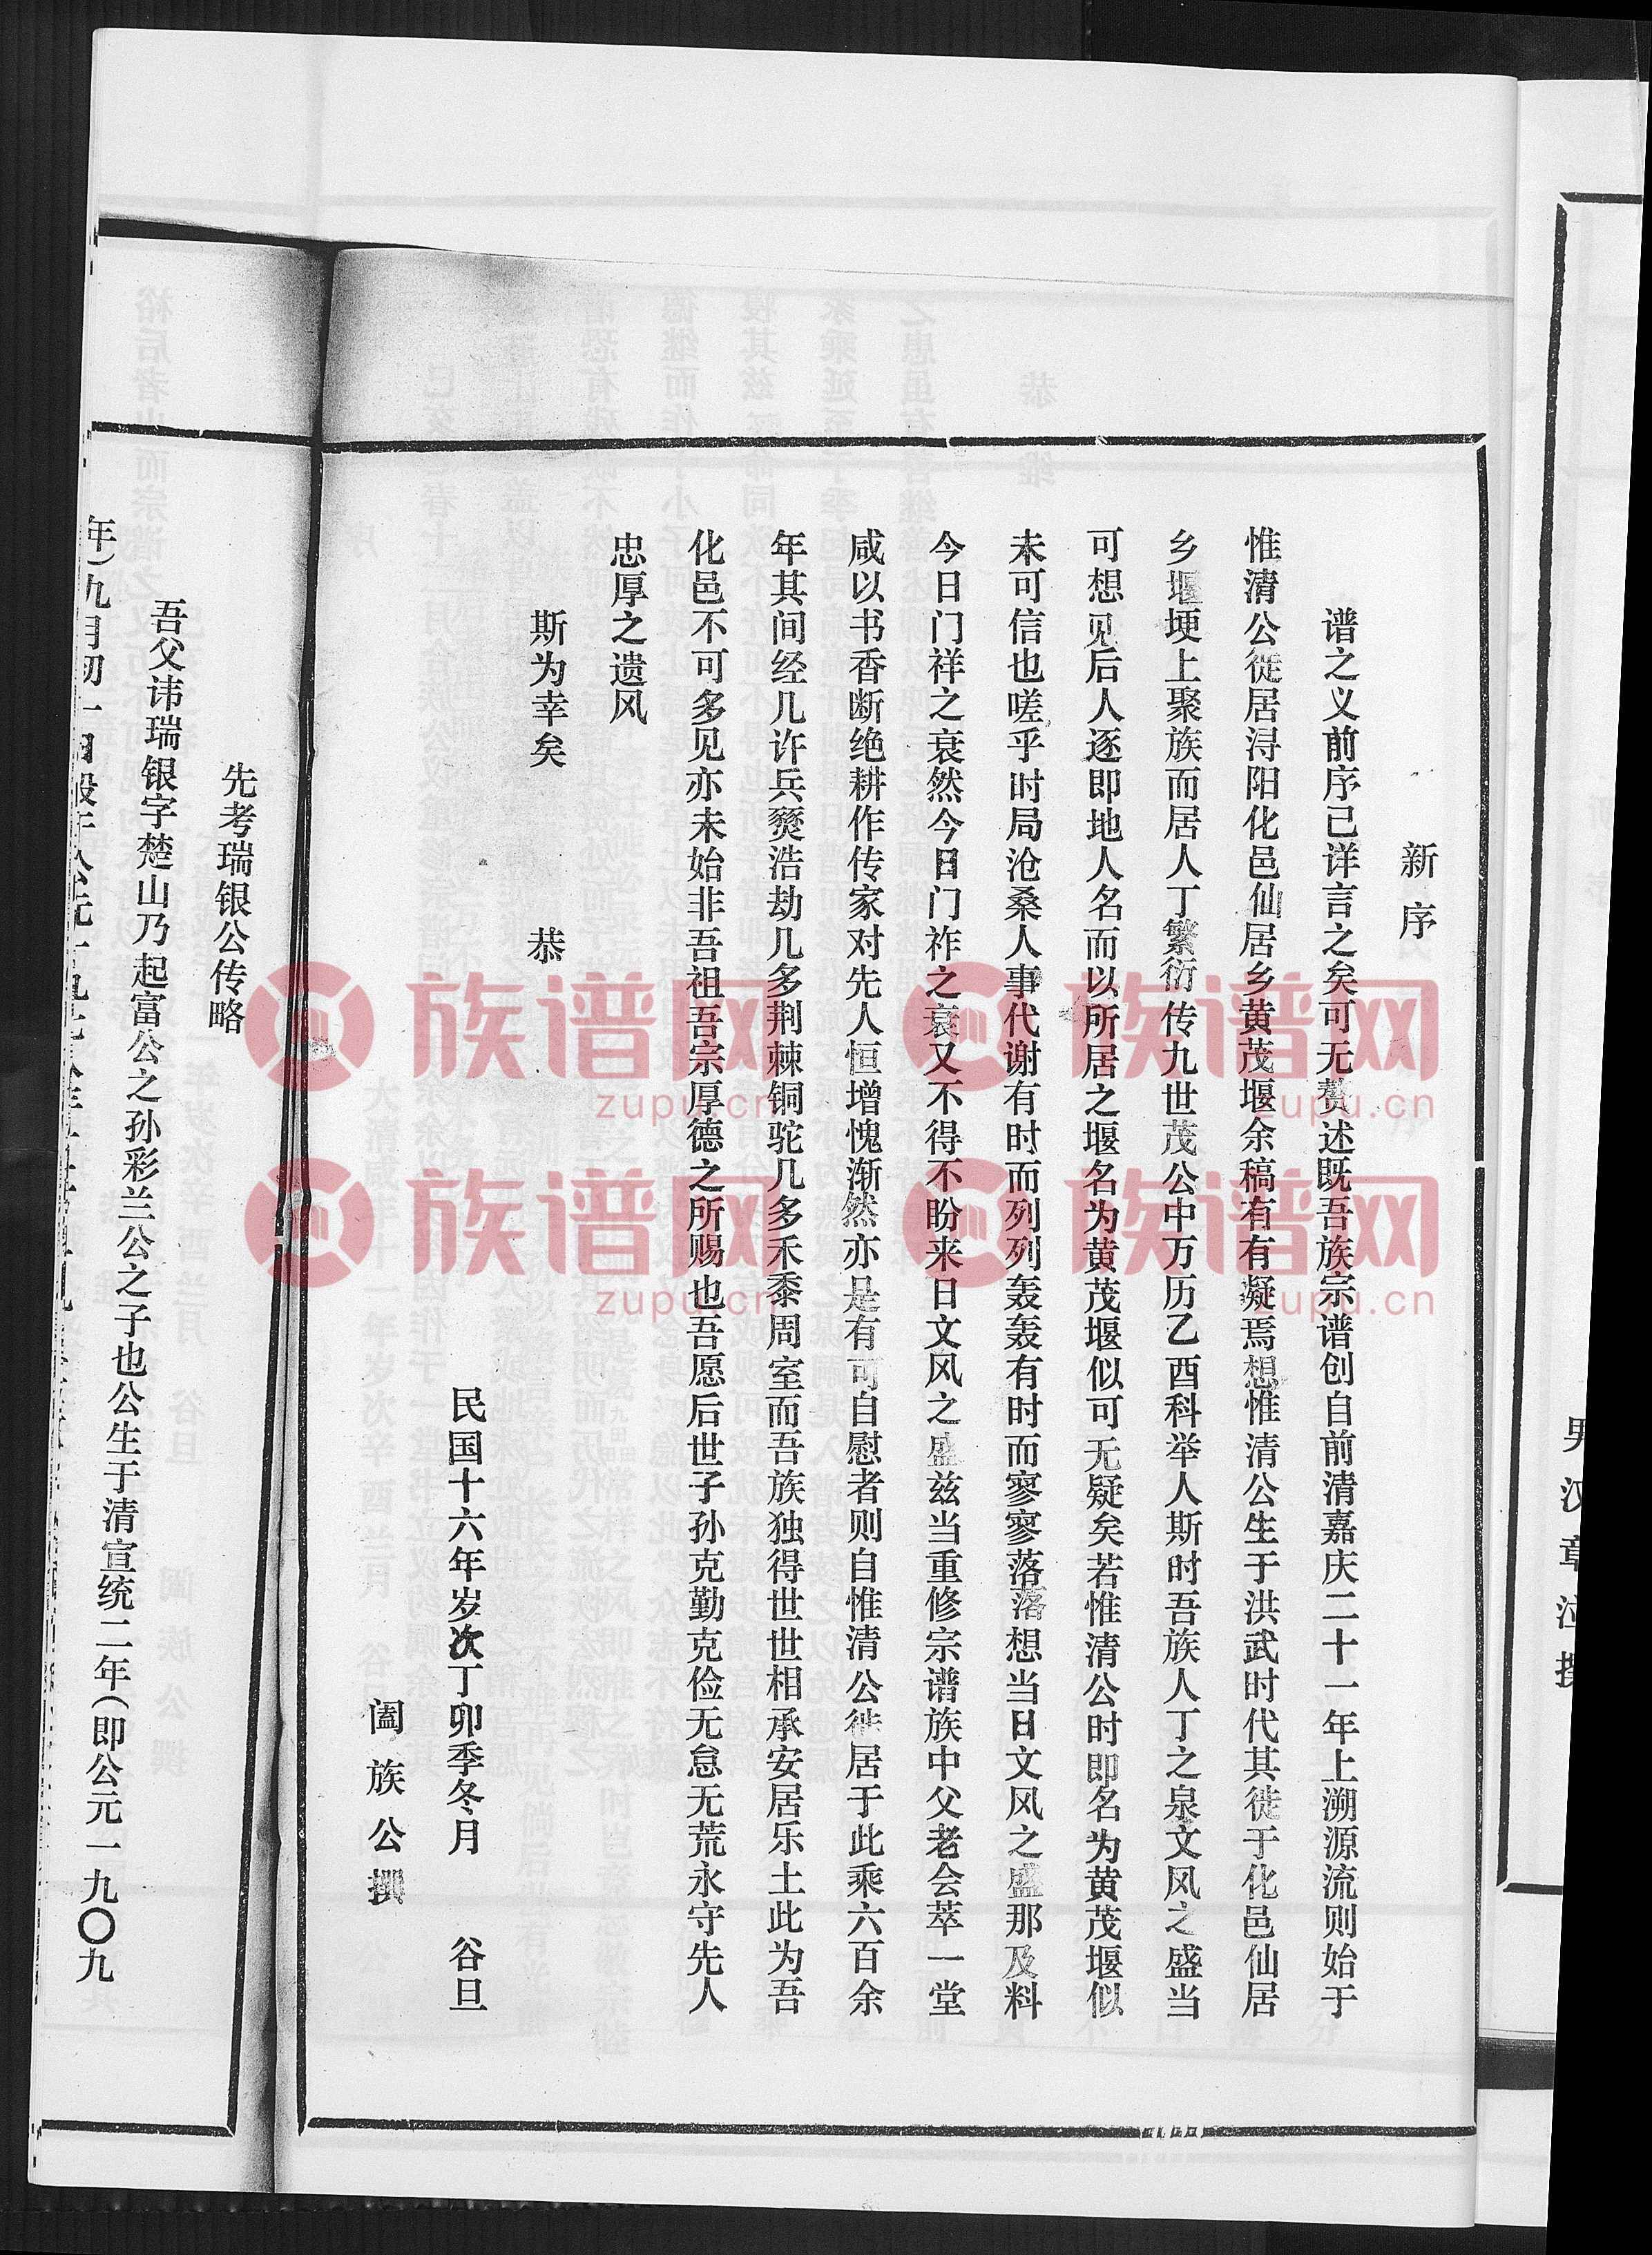 男汉章泣撰
新序
谱之义前序已详言之矣可无赘述既吾族宗谱创自前清嘉庆二十一年上溯源流则始于
惟清公徙居浔阳化邑仙居乡黄茂堰余稿有有凝焉想惟清公生于洪武时代其徙于化邑仙居
乡堰埂上聚族而居人丁繁衍传九世茂公中万历乙酉科举人斯时吾族人丁之泉文风之盛当
可想见后人逐即地人名而以所居之堰名为黄茂堰似可无疑矣若惟清公时即名为黄茂堰似
未可信也嗟乎时局沧桑人事代谢有时而列列轰轰有时而寥寥落落想当日文风之盛那及料
今日门祥之衰然今日门祚之衰又不得不盼来日文风之盛兹当重修宗谱族中父老会萃一堂
咸以书香断绝耕作传家对先人恒增愧渐然亦是有可自慰者则自惟清公徙居于此乘六百余
年其间经几许兵燹浩劫几多荆棘铜驼几多禾黍周室而吾族独得世世相承安居乐土此为吾
化邑不可多见亦未始非吾祖吾宗厚德之所赐也吾愿后世子孙克勤克俭无怠无荒永守先人
忠厚之遗风
斯为幸矣 恭
民国十六年岁次丁卯季冬月 谷旦
阖族公撰
先考瑞银公传略
吾父讳瑞银字楚山乃起富公之孙彩兰公之子也公生于清宣统二年(即公元一九〇九
年)九月初
族谱网
zupu.cn
族谱网
zupu.cn
族谱网
zupu.cn
族谱网
zupu.cn